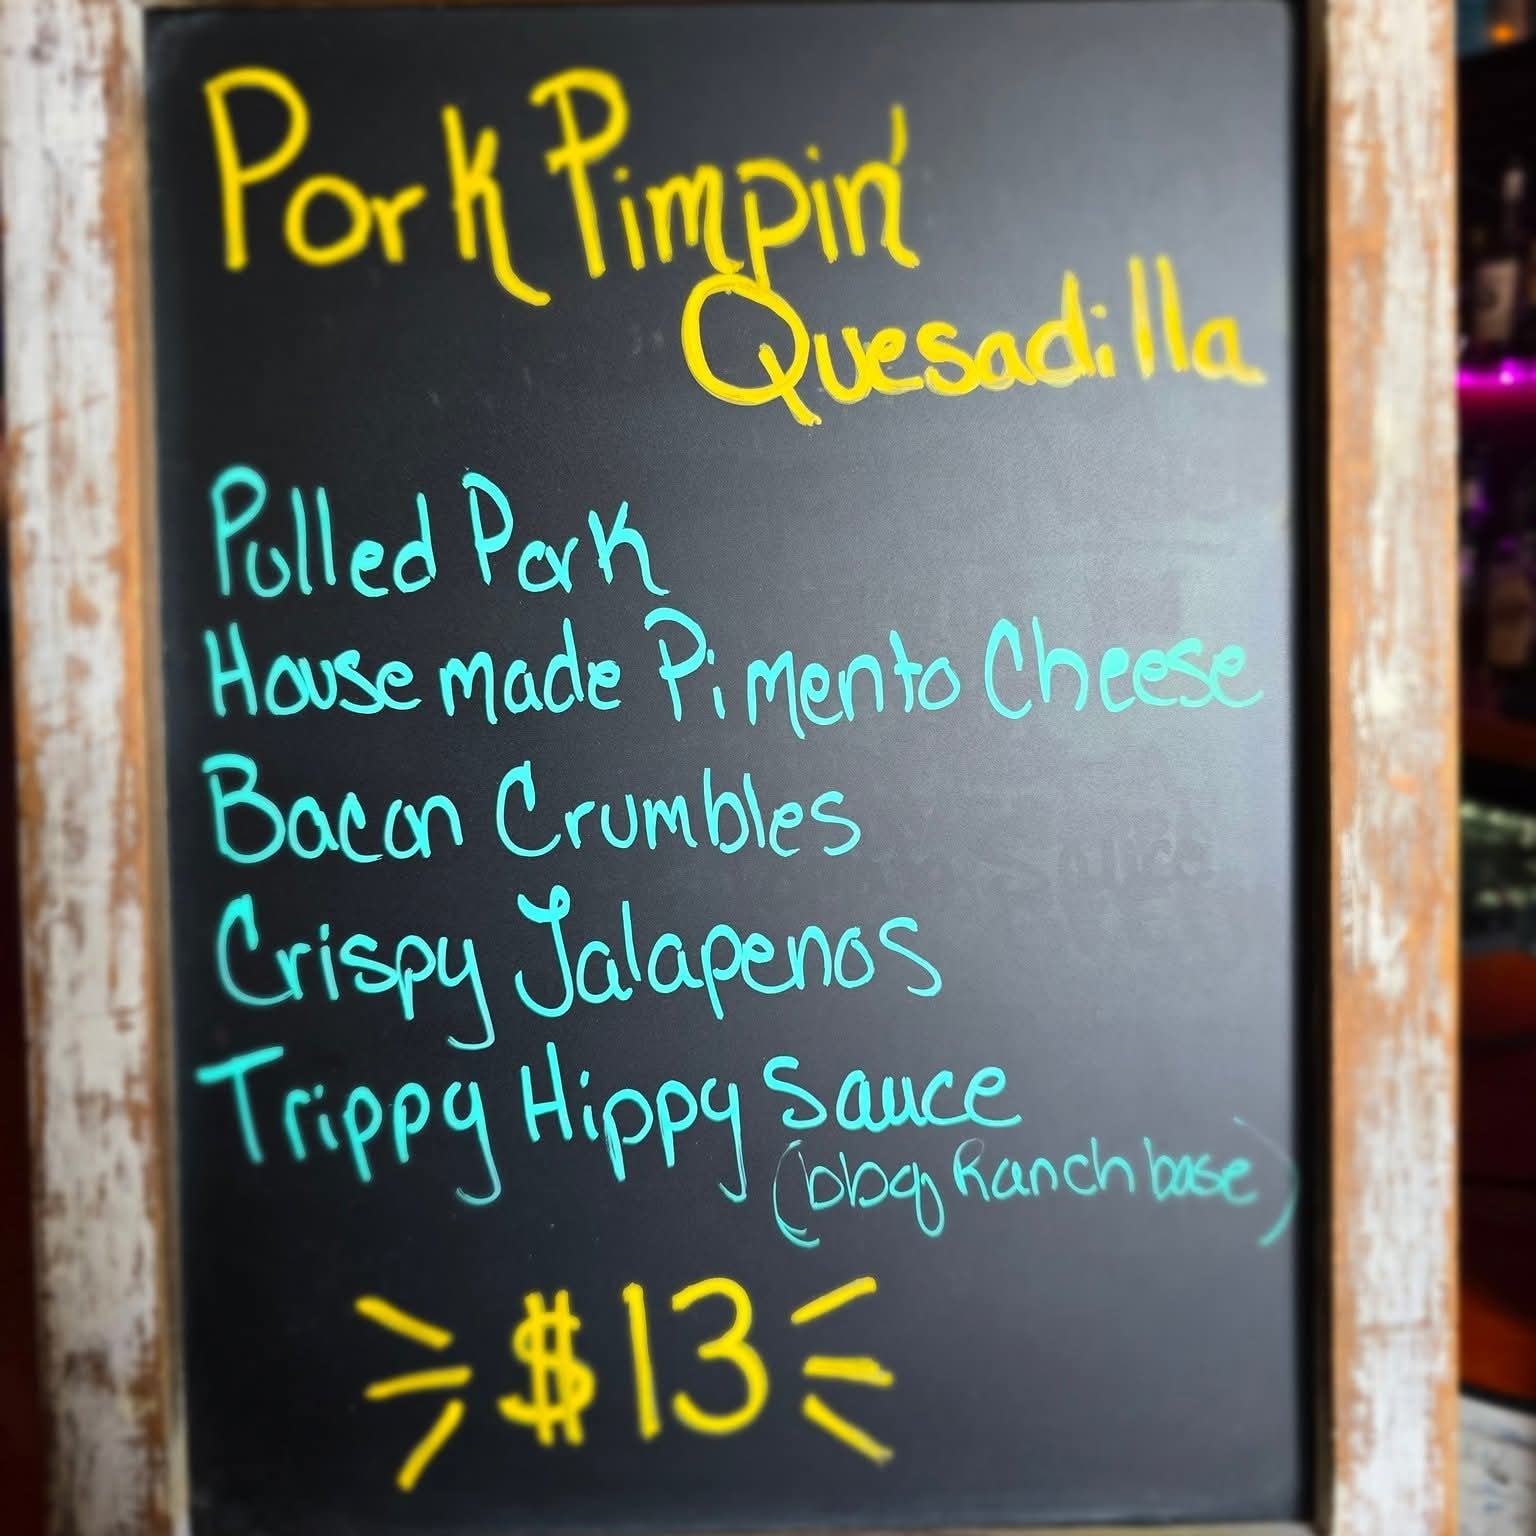 Pork Pimpin'
Quesadilla
Pulled Pork
House made Pimento Cheese
Bacon Crumbles
Crispy Jalapenos
Trippy Hippy Sauce
(bbq Ranch base)
$13